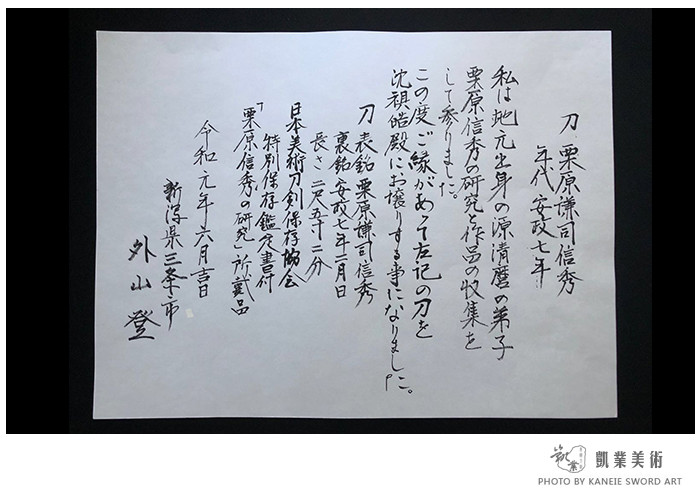 刀 栗原謙司信秀
年代 安政七年
私は地元出身の源清麿の弟子
栗原信秀の研究と作品の収集を
して参りました。
この度ご縁があって左記の刀を
沈祖皓殿にお譲りする事になりました。
刀 表銘 栗原謙司信秀
裏銘 安政七年二月日
長さ 二尺五寸二分
日本美術刀剣保存協会
特別保存鑑定書付
「栗原信秀の研究」所載品
令和元年六月吉日
新潟県三条市
外山登
凱業美術
PHOTO BY KANEIE SWORD ART